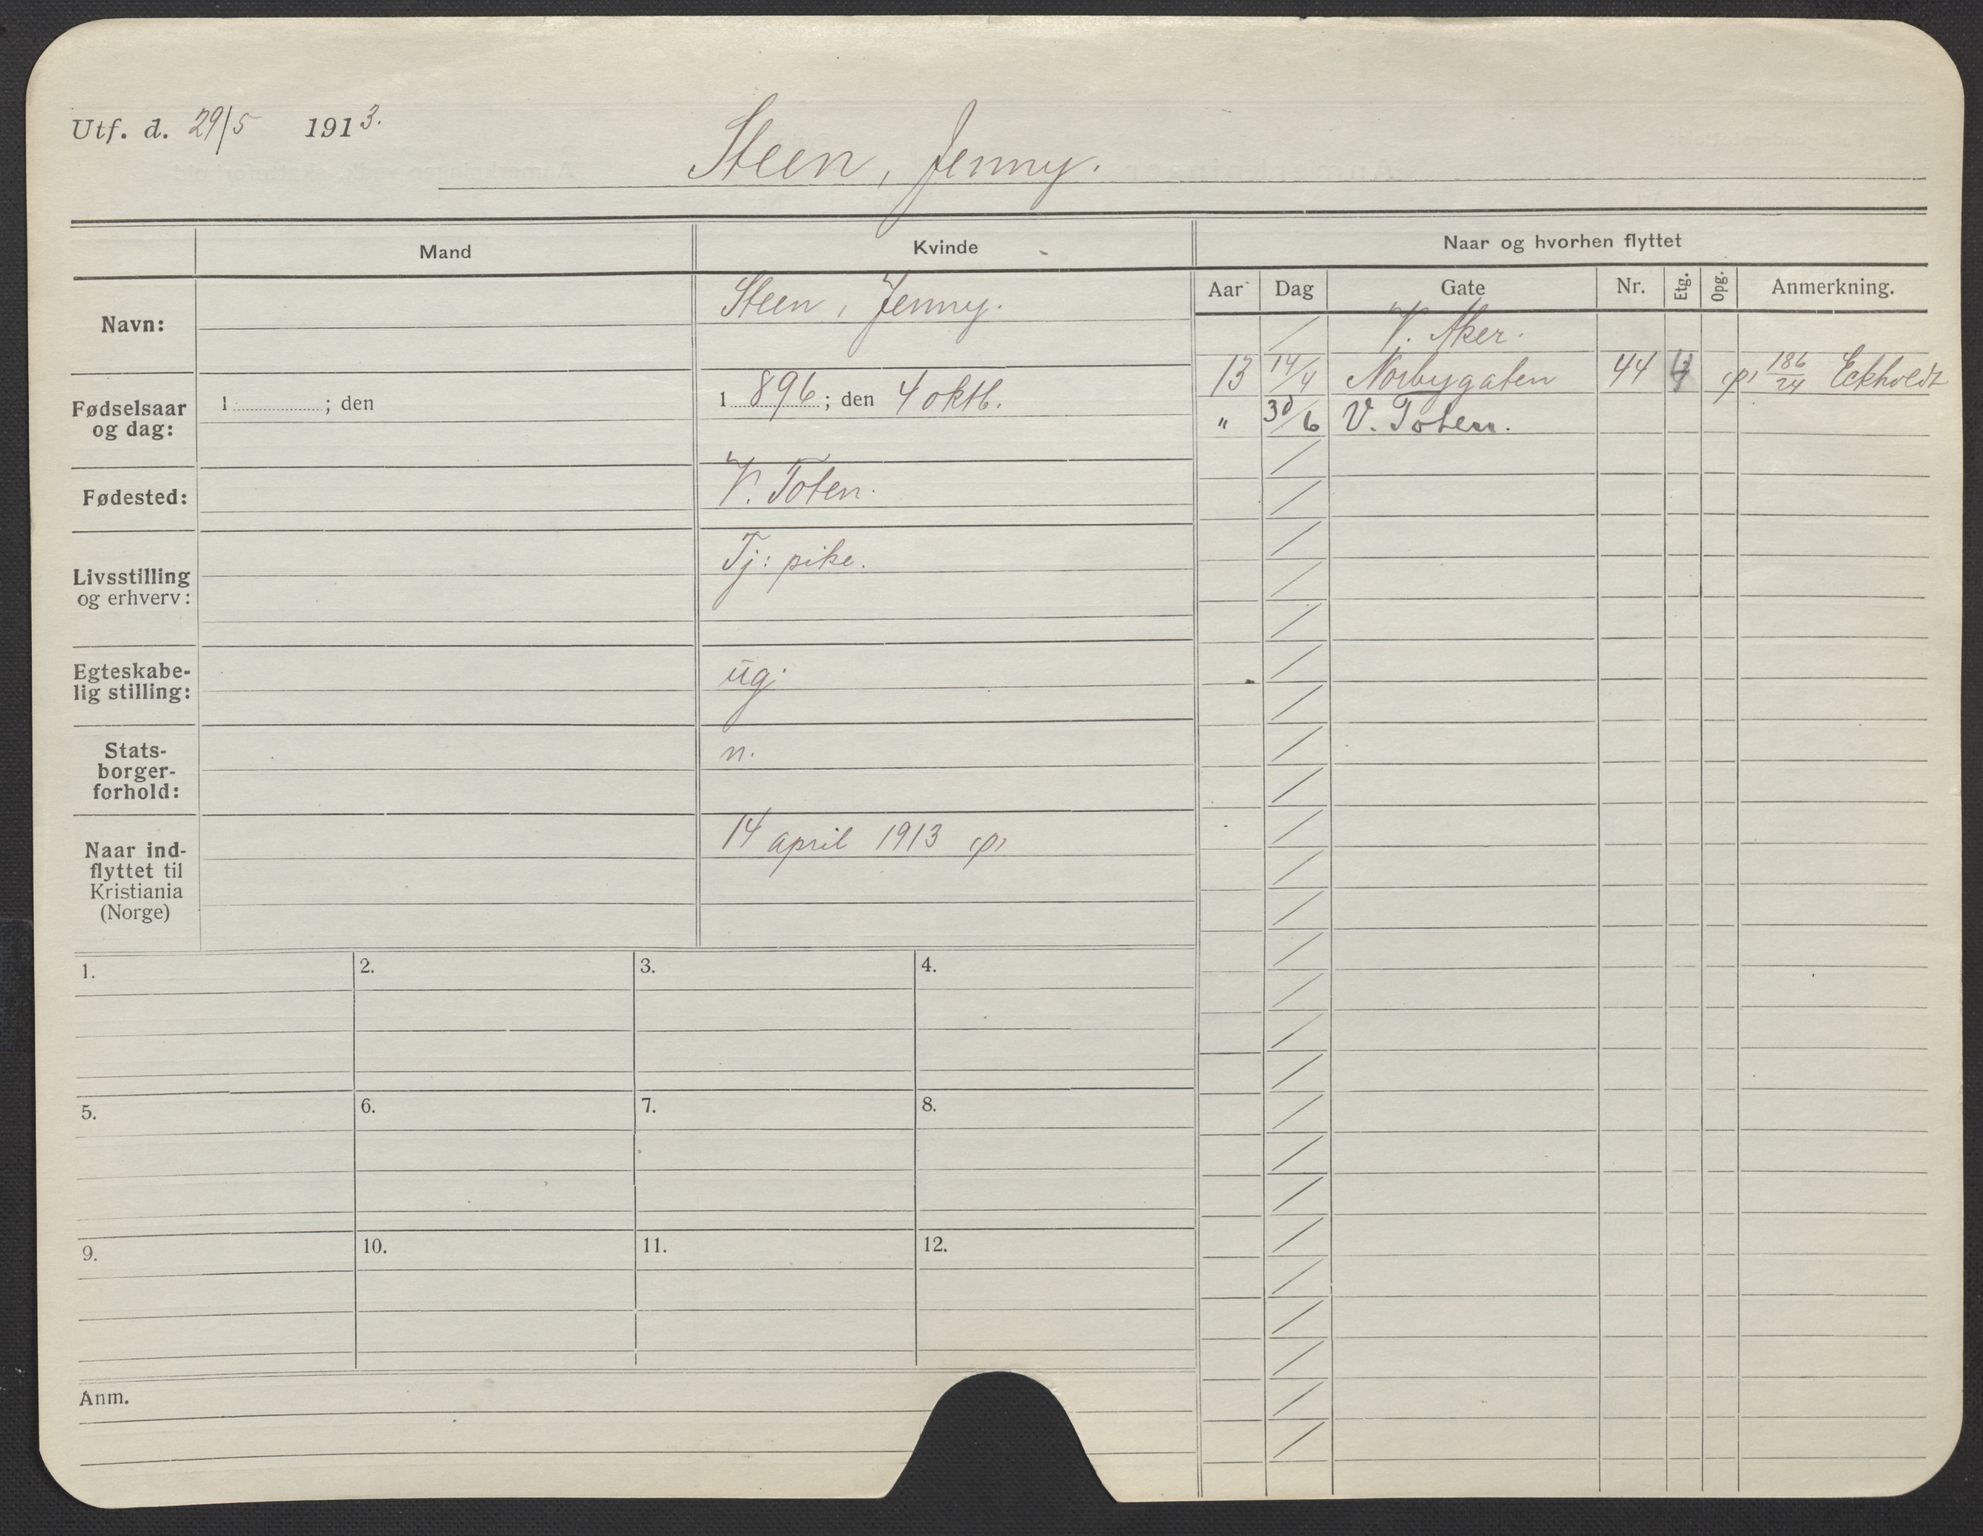 Utf. d. 29/5 1913.
Steen, Jenny.
Mand
Kvinde
Naar og hvorhen flyttet
Aar Dag Gate Nr. Etg. Opg. Anmerkning.
Navn:
Steen, Jenny.
Fødselsaar
og dag:
1 ; den
1 896 ; den 4 oktb.
Fødested:
V. Toten.
Livsstilling
og erhverv:
Tj: pike.
Egteskabe-
lig stilling:
ug.
Stats-
borger-
forhold:
n.
Naar ind-
flyttet til
Kristiania
(Norge)
14 april 1913 (p)
V. Aker.
13 14/4 Norbygaten 44 (p) 186/24 Eckholdt
" 30/6 V. Toten.
1.
2.
3.
4.
5.
6.
7.
8.
9.
10.
11.
12.
Anm.